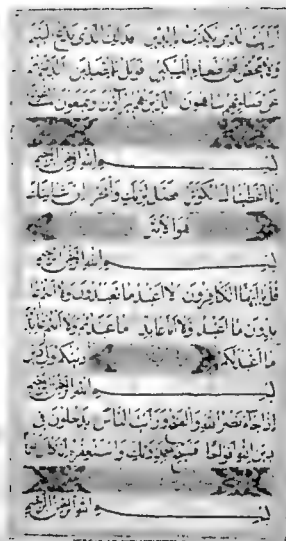 أرأيت الذي يكذب بالدين فذلك الذي يدع اليتيم
ولا يحض على طعام المسكين فويل للمصلين الذين هم
عن صلاتهم ساهون الذين هم يراؤن ويمنعون
بسم الله الرحمن الرحيم
انا اعطيناك الكوثر فصل لربك وانحر ان شانئك
هو الابتر
بسم الله الرحمن الرحيم
قل يا ايها الكافرون لا اعبد ما تعبدون ولا انتم
عابدون ما اعبد ولا انا عابد ما عبدتم ولا انتم عابدون
ما اعبد لكم دينكم ولي دين
بسم الله الرحمن الرحيم
اذا جاء نصر الله والفتح ورأيت الناس يدخلون في
دين الله افواجا فسبح بحمد ربك واستغفره انه كان توابا
بسم الله الرحمن الرحيم